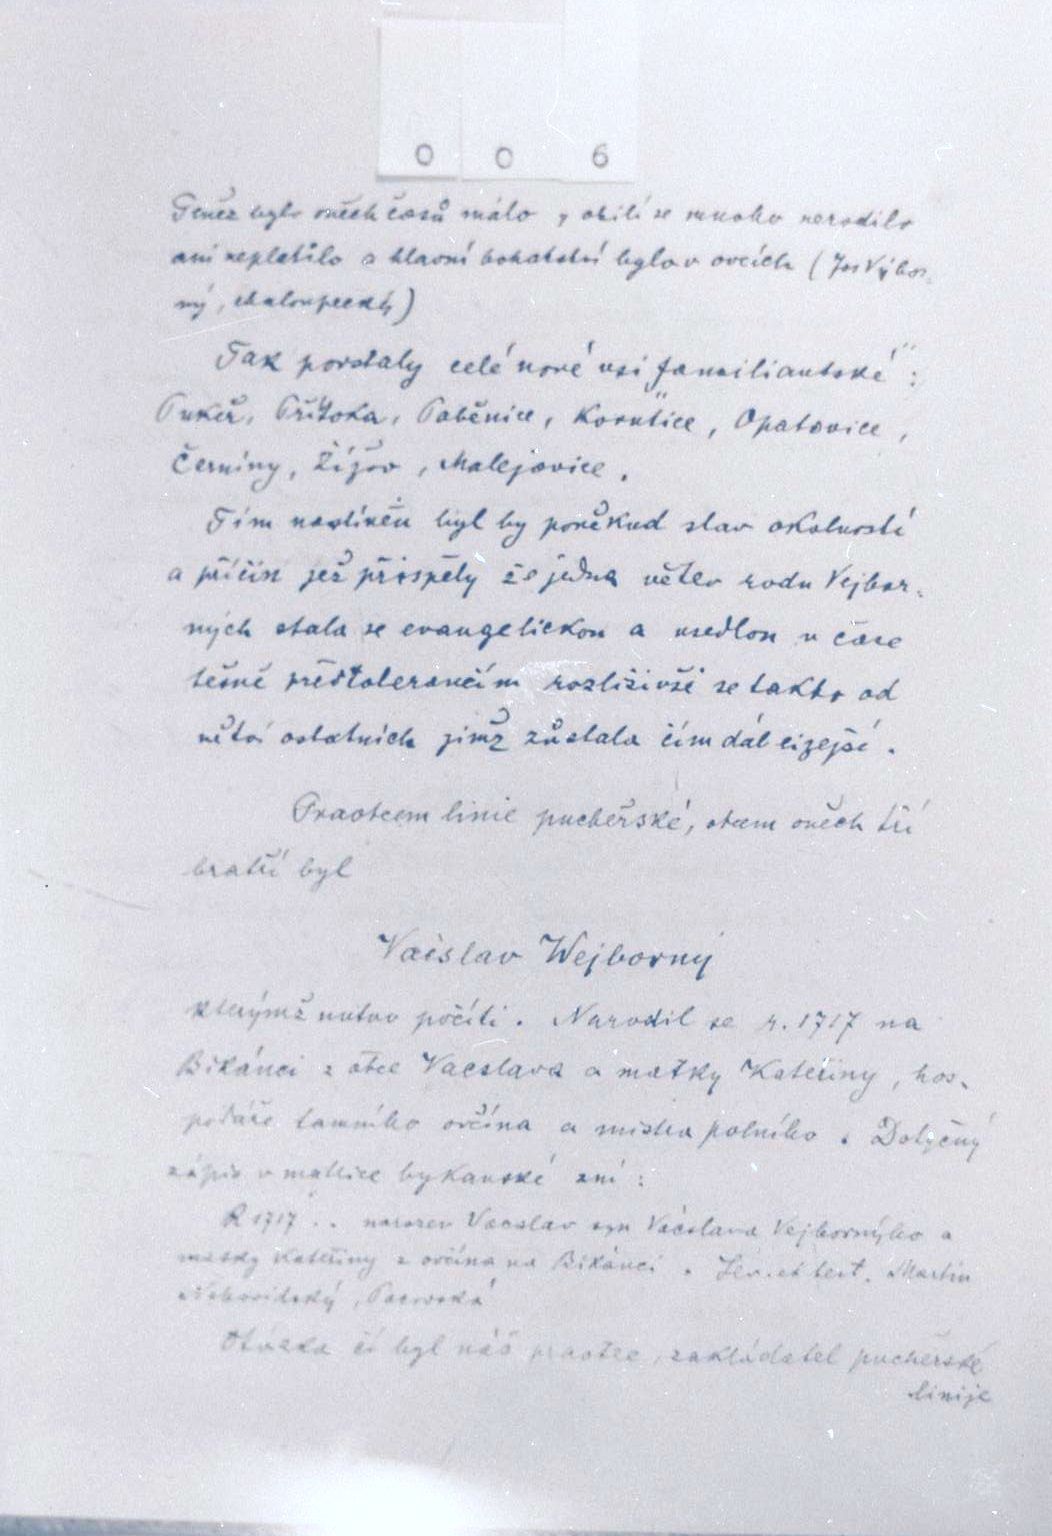 0 0 6
Peněz bylo oněch časů málo, obilí se mnoho nerodilo
ani neplatilo a hlavní bohatství bylo v ovcích (Jos Výbor-
ný, chaloupecký)
Tak povstaly celé nové vsi familiantské":
Pukeř, Přítoka, Paběnice, Korutice, Opatovice,
Černíny, Žížov, Malejovice.
Tím nastíněn byl by poněkud stav okolností
a příčin jež přispěly že jedna větev rodu Vejbor-
ných stala se evangelickou a usedlou v čase
těsně předtolerančním rozlišivši se takto od
větví ostatních jimž zůstala čím dál cizejší.
Praotcem linie pucheřské, otcem oněch tří
bratří byl
Vácslav Wejborný
kterýmž nutno počíti. Narodil se r. 1717 na
Bikánci z otce Vacslava a matky Kateřiny, hos-
podáře tamního ovčína a mistra polního. Dotyčný
zápis v matrice bykanské zní:
R 1717 .. narozen Vacslav syn Vácslava Vejborného a
matky Kateřiny z ovčína na Bikánci. Lev. et test. Martin
Otázka čí byl náš praotec, zakladatel pucheřské
linije